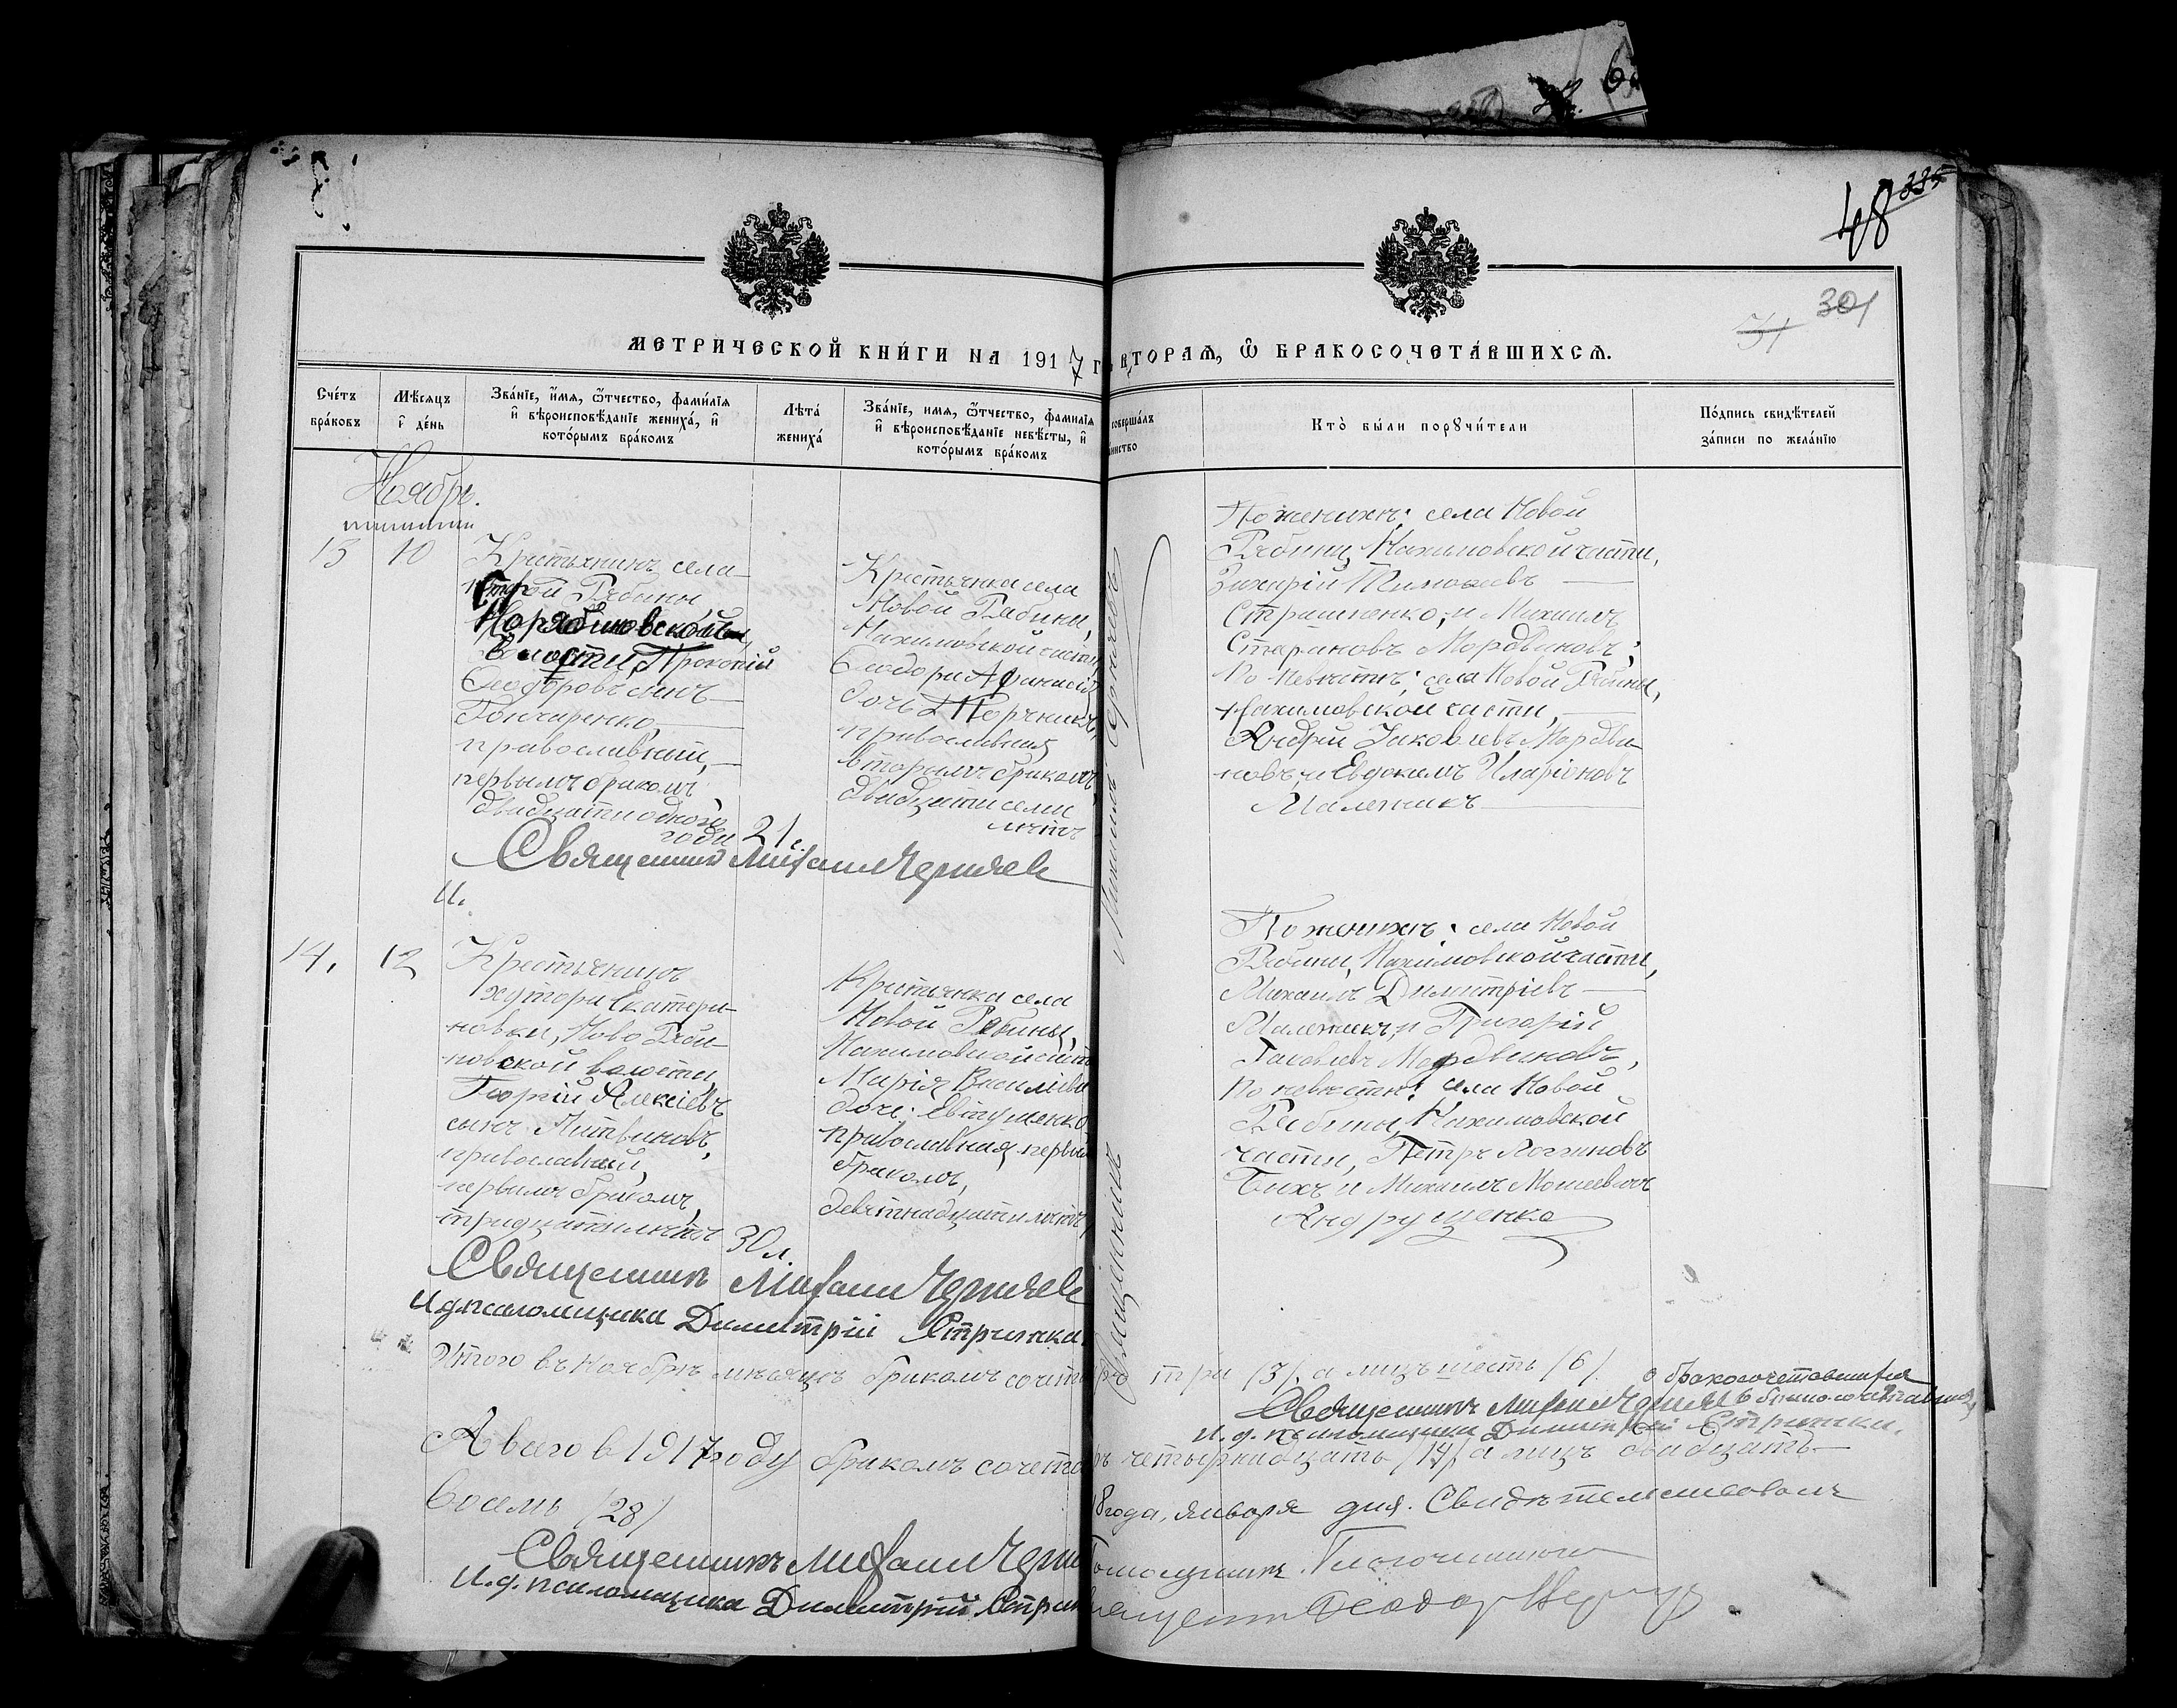 48
335
301
31
МЕТРИЧЕСКОЙ КНИГИ НА 1917 Г
ВТОРАЯ, Ѿ БРАКОСОЧЕТАВШИХСЯ.
Счетъ браковъ
Мѣсяцъ и день
Званіе, имя, ѿчество, фамилія
и вѣроисповѣданіе жениха, и
которымъ бракомъ
Лѣта
жениха
Званіе, имя, ѿчество, фамилія
и вѣроисповѣданіе невѣсты, и
которымъ бракомъ
совершалъ
Кто были порꙋчители
Подпись свидѣтелей
записи по желанію
Ноябрь.
13
10
Крестьянинъ села
Старой Рябины
Волости, Прокопій
Ѳеодоровъ сынъ
Гончаренко,
православный,
первымъ бракомъ
двадцати одного
года
21 г.
Крестьянка села
Новой Рябины,
Нахимовской части
Ѳеодора Афанасіев
дочь
православная
вторымъ бракомъ,
двадцати семи
лѣтъ
Священникъ Михаил Черняев
Священникъ Михаилъ Черняевъ
По женихѣ: села Новой
Рябины, Нахимовской части,
Захарій Тимоѳеевъ
Страшненко, и Михаилъ
Стефановъ Мордвиновъ;
По невѣстѣ: села Новой Рябины,
Нахимовской части,
Андрей Іаковлевъ Мордви-
новъ, и Евдокимъ Иларіоновъ
Маленикъ
14.
12
Крестьянинъ
хутора Екатери-
новки, Ново Ряби-
новской волости
Георгій Алексіевъ
сынъ Литвиновъ,
православный,
первымъ бракомъ,
тридцати лѣтъ
30 л.
Крестьянка села
Новой Рябины,
Нахимовской части
Марія Василіева
дочь Евтушенко
православная, первым
бракомъ,
девятнадцати лѣтъ,
По женихѣ: села Новой
Рябины, Нахимовской части,
Михаилъ Димитріевъ
Маленикъ, и Григорій
Іаковлевъ Мордвиновъ,
По невѣстѣ: села Новой
Рябины, Нахимовской
части, Петръ Логиновъ
Бихъ и Михаилъ Моисеевъ
Андрущенко
Священникъ Михаил Черняев
И. д. псаломщика Димитрій Стрижка
Итого въ Ноябрѣ мѣсяцѣ бракомъ сочета
три (3), а лицъ шесть (6).
о бракосочетавшихся
Священникъ Михаил Черняев
И. д. псаломщика Димитрій Стрижка.
А всего в 1917 году бракомъ сочета
четырнадцать (14), а лицъ двадцать
восемь (28)
Священникъ Михаил Черня
И. д. псаломщика Димитрій Стриж
8 года, января дня. Свидѣтельствовалъ
Помощникъ Благочиннаго